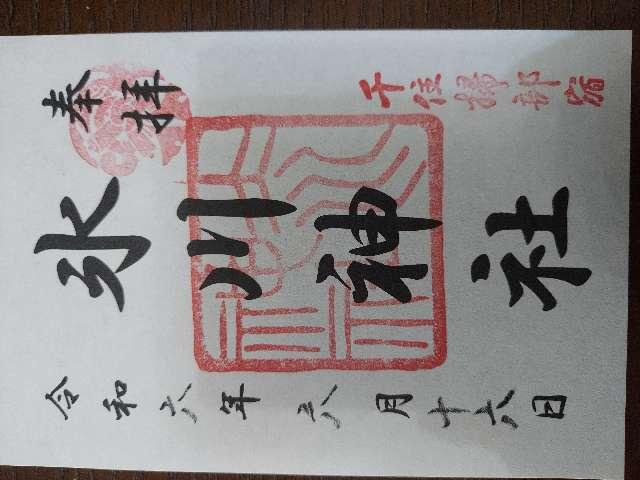 千住掃部宿
奉拝
氷川神社
令和六年六月十六日